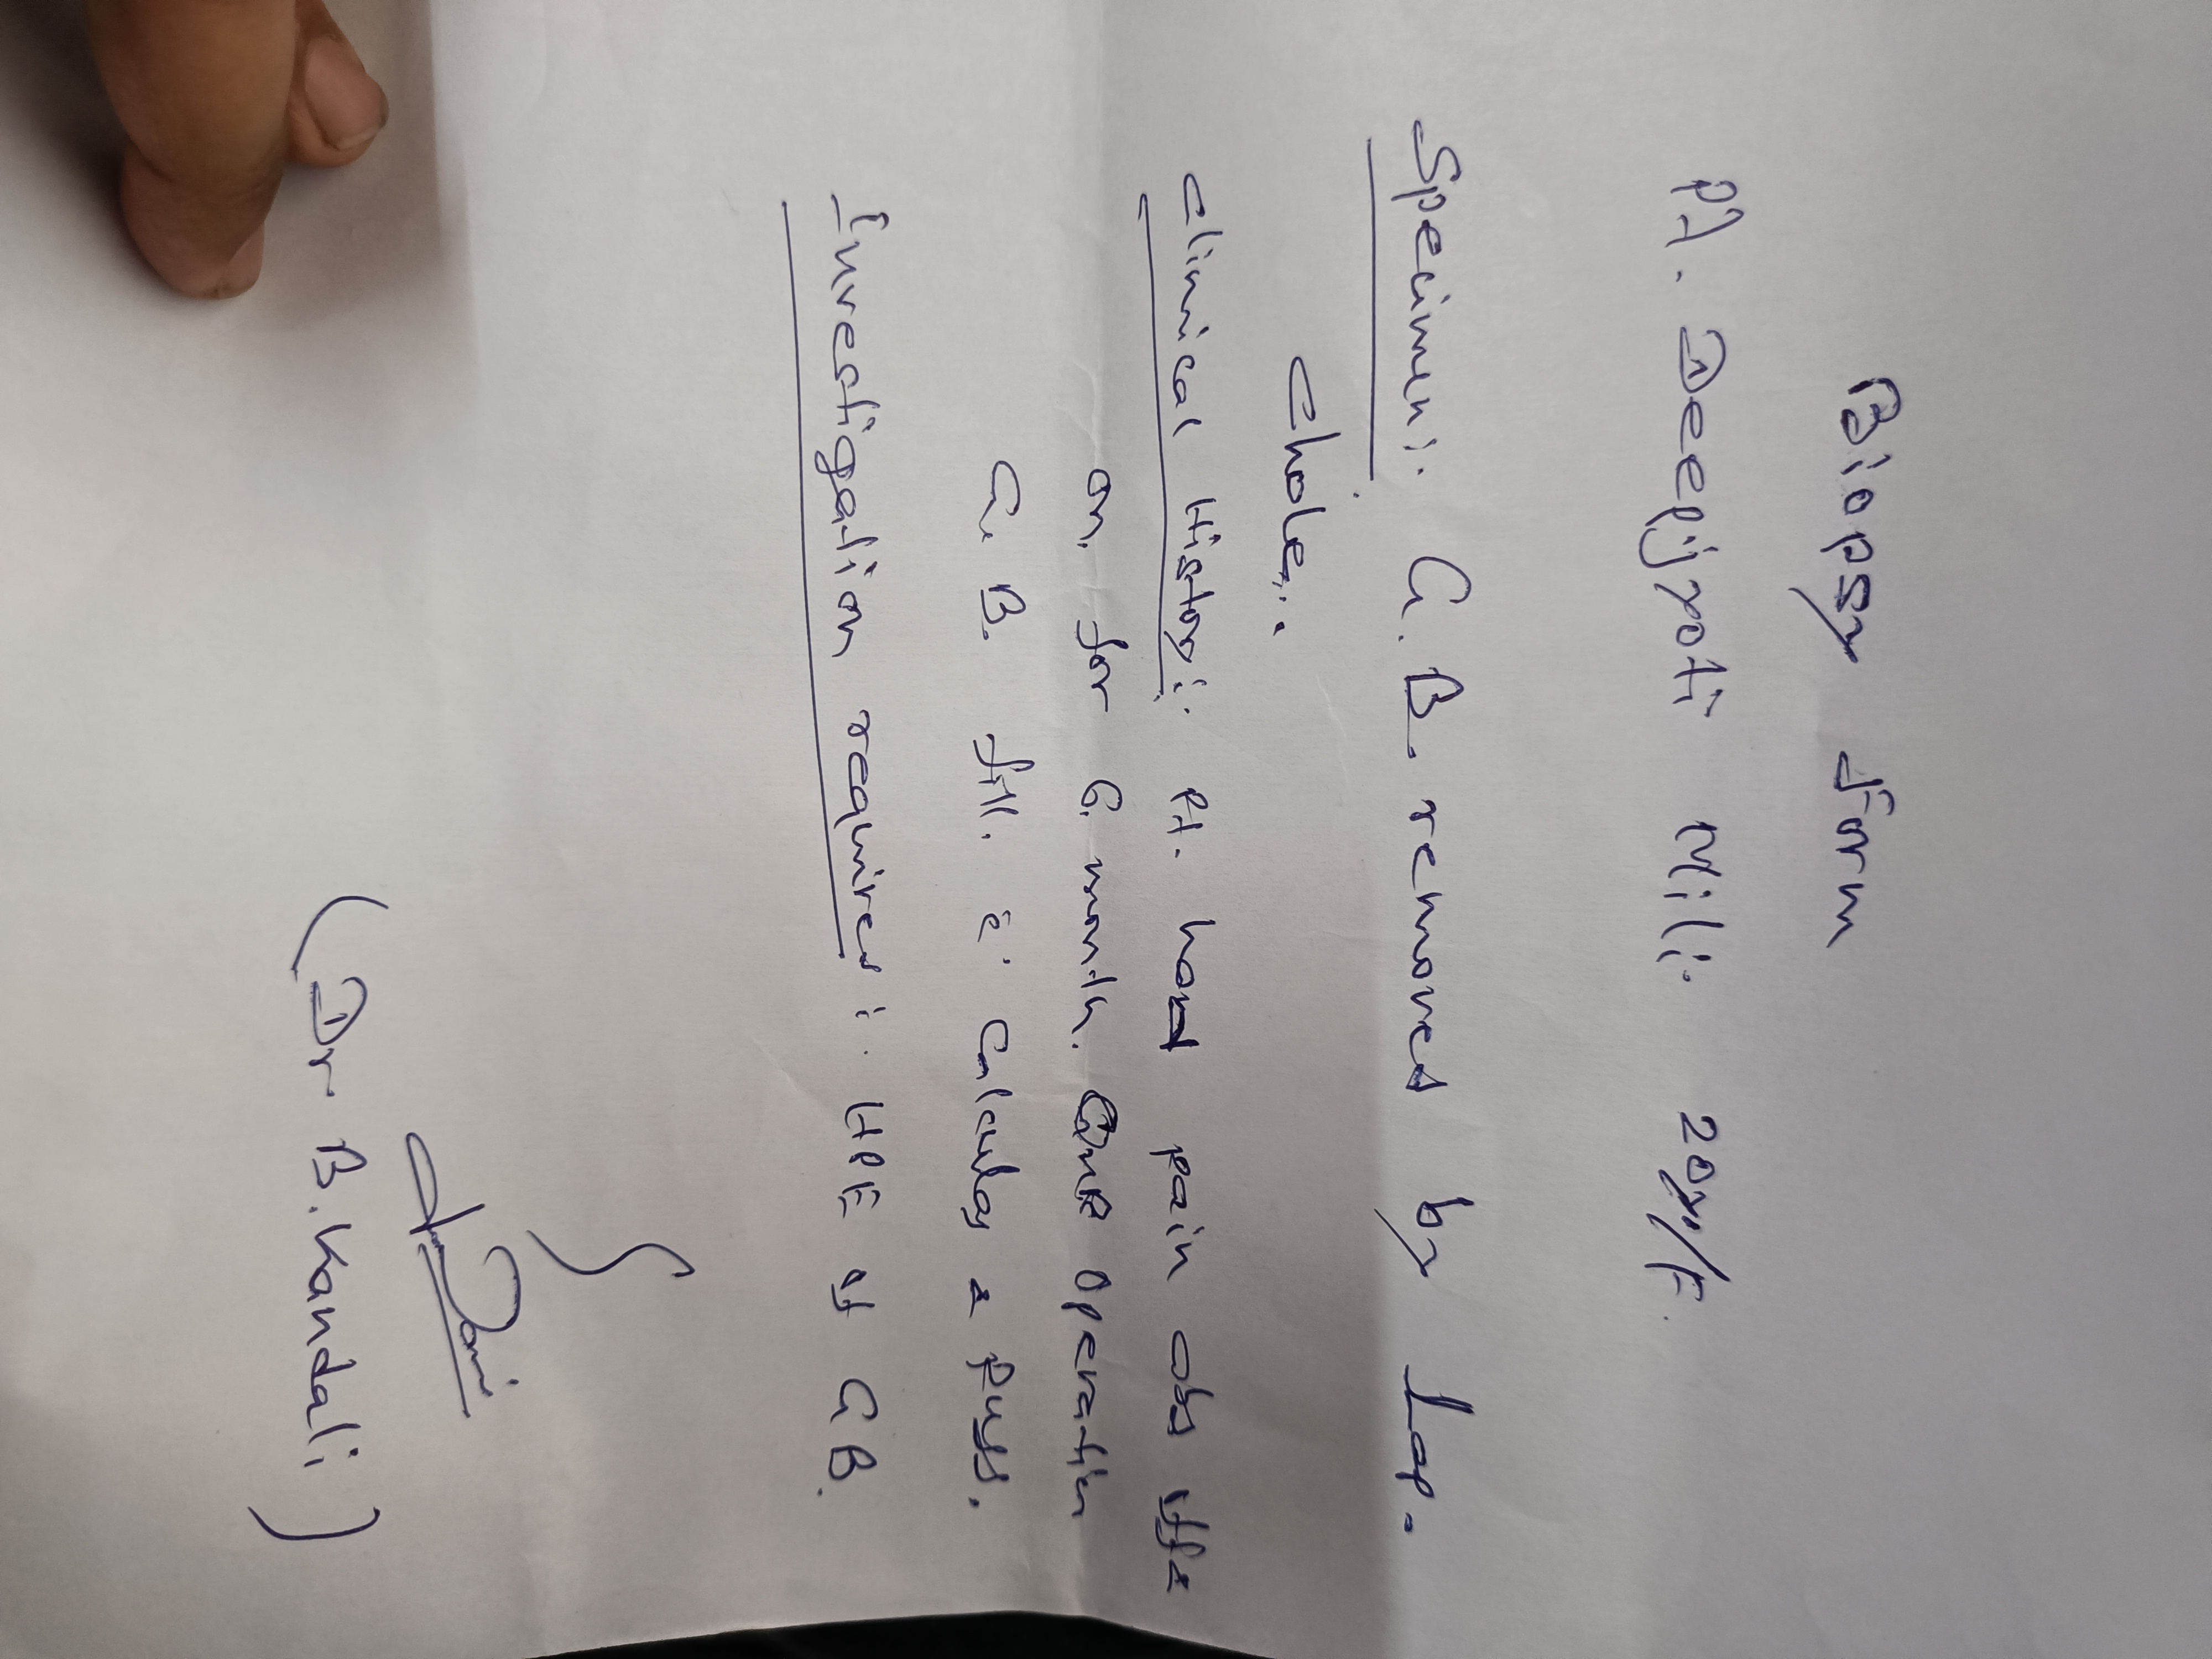 Biopsy Form
Pt. Deepjyoti Mili. 20y/F.
Specimen:. G.B. removed by Lap.
Chole..
Clinical History:. Pt. had pain abd off &
on. for 6 month. operation
G.B. full. c̄ Calculas & Puss.
Investigation required:. HPE of GB.
(Dr. B. Kandali)